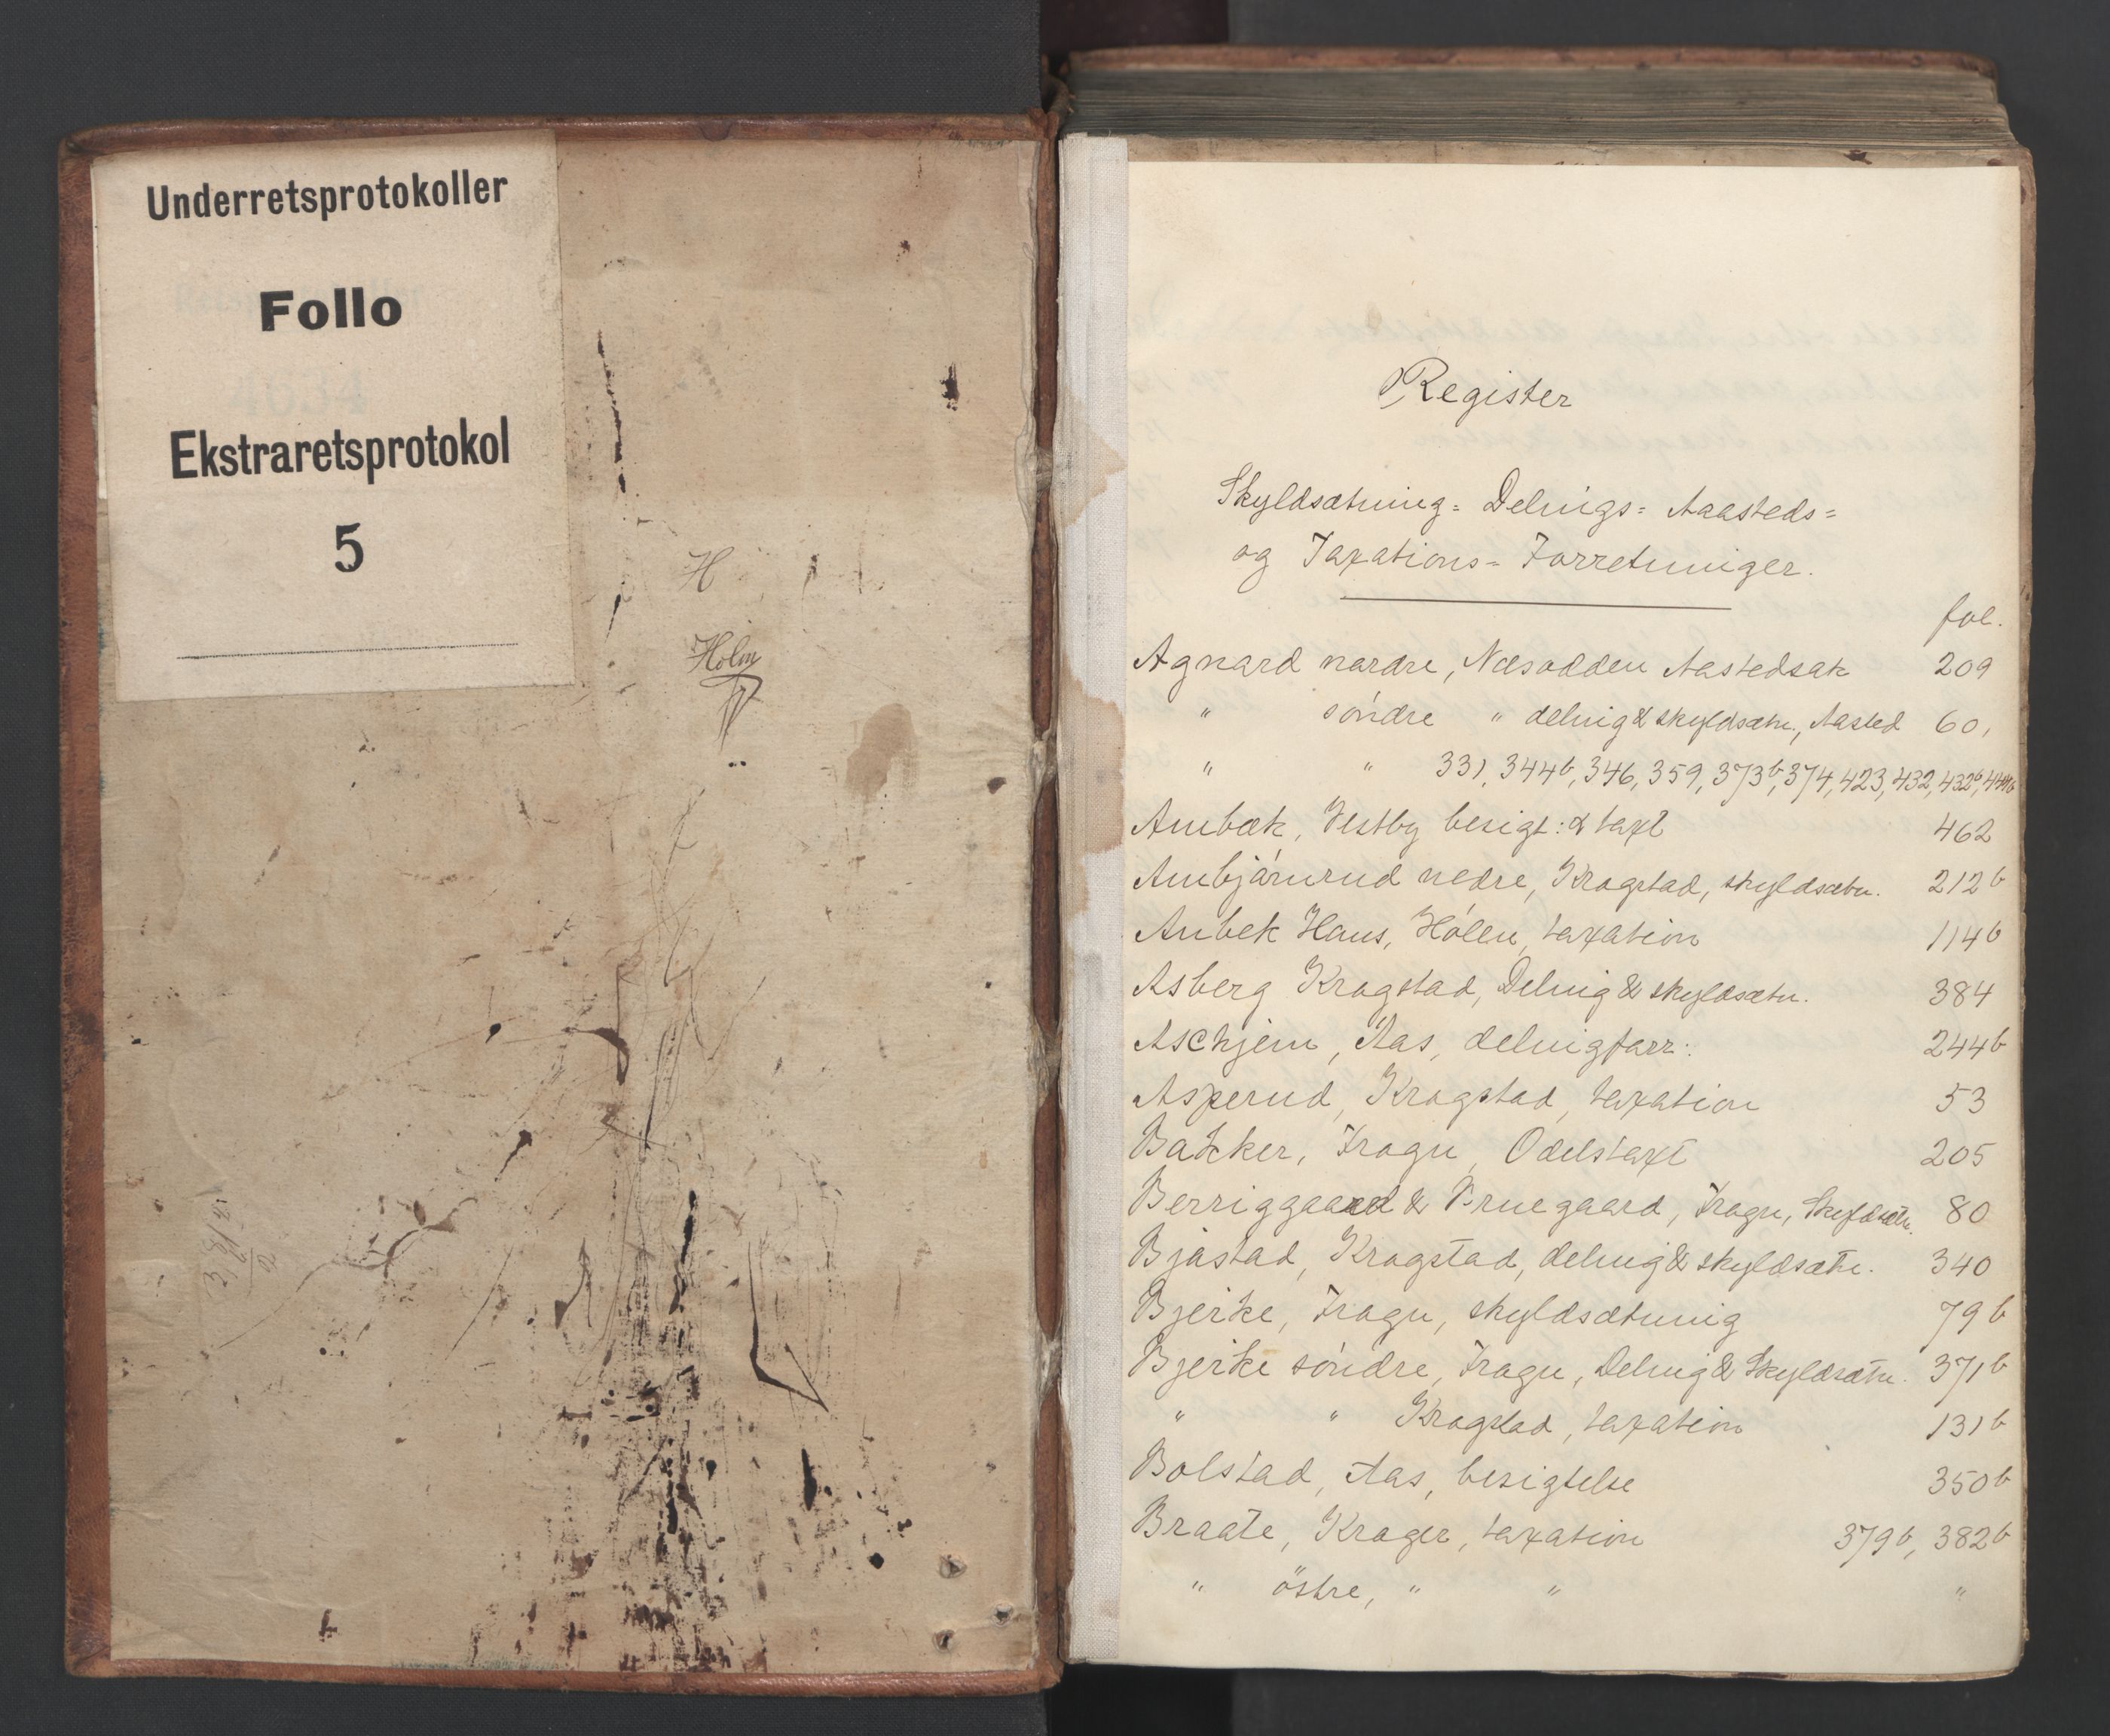 Underretsprotokoller
Follo
Ekstraretsprotokol
5
H
Holm
Register
Skyldsætning= Delings= Aasteds=
og Taxations= Forretninger.
fol.
Agnord nordre, Næsodden Aastedsak 209
" söndre " deling & skyldsætn., Aasted 60,
" " 331, 344b, 346, 359, 373b, 374, 423, 432, 432b, 444b
Arnbæk, Vestby besigt: & taxt 462
Arnbjörnrud nedre, Krogstad, skyldsætn. 212b
Anbek Hans, Hölen, taxation 114b
Asberg Krogstad, Deling & skyldsætn. 384
Aschjem, Aas, delingforr: 244b
Asperud, Krogstad, taxation 53
Bakker, Frogn, Odelstaxt 205
Berriggaard & Bruegaard, Frogn, Skyldsætn. 80
Bjästad, Krogstad, deling & skyldsætn. 340
Bjerke, Frogn, skyldsætning 79b
Bjerke söndre, Frogn, Deling & Skyldsætn. 371b
" " Krogstad, taxation 131b
Bolstad, Aas, besigtelse 350b
Braate, Kroger, taxation 379b, 382b
" östre, " " "